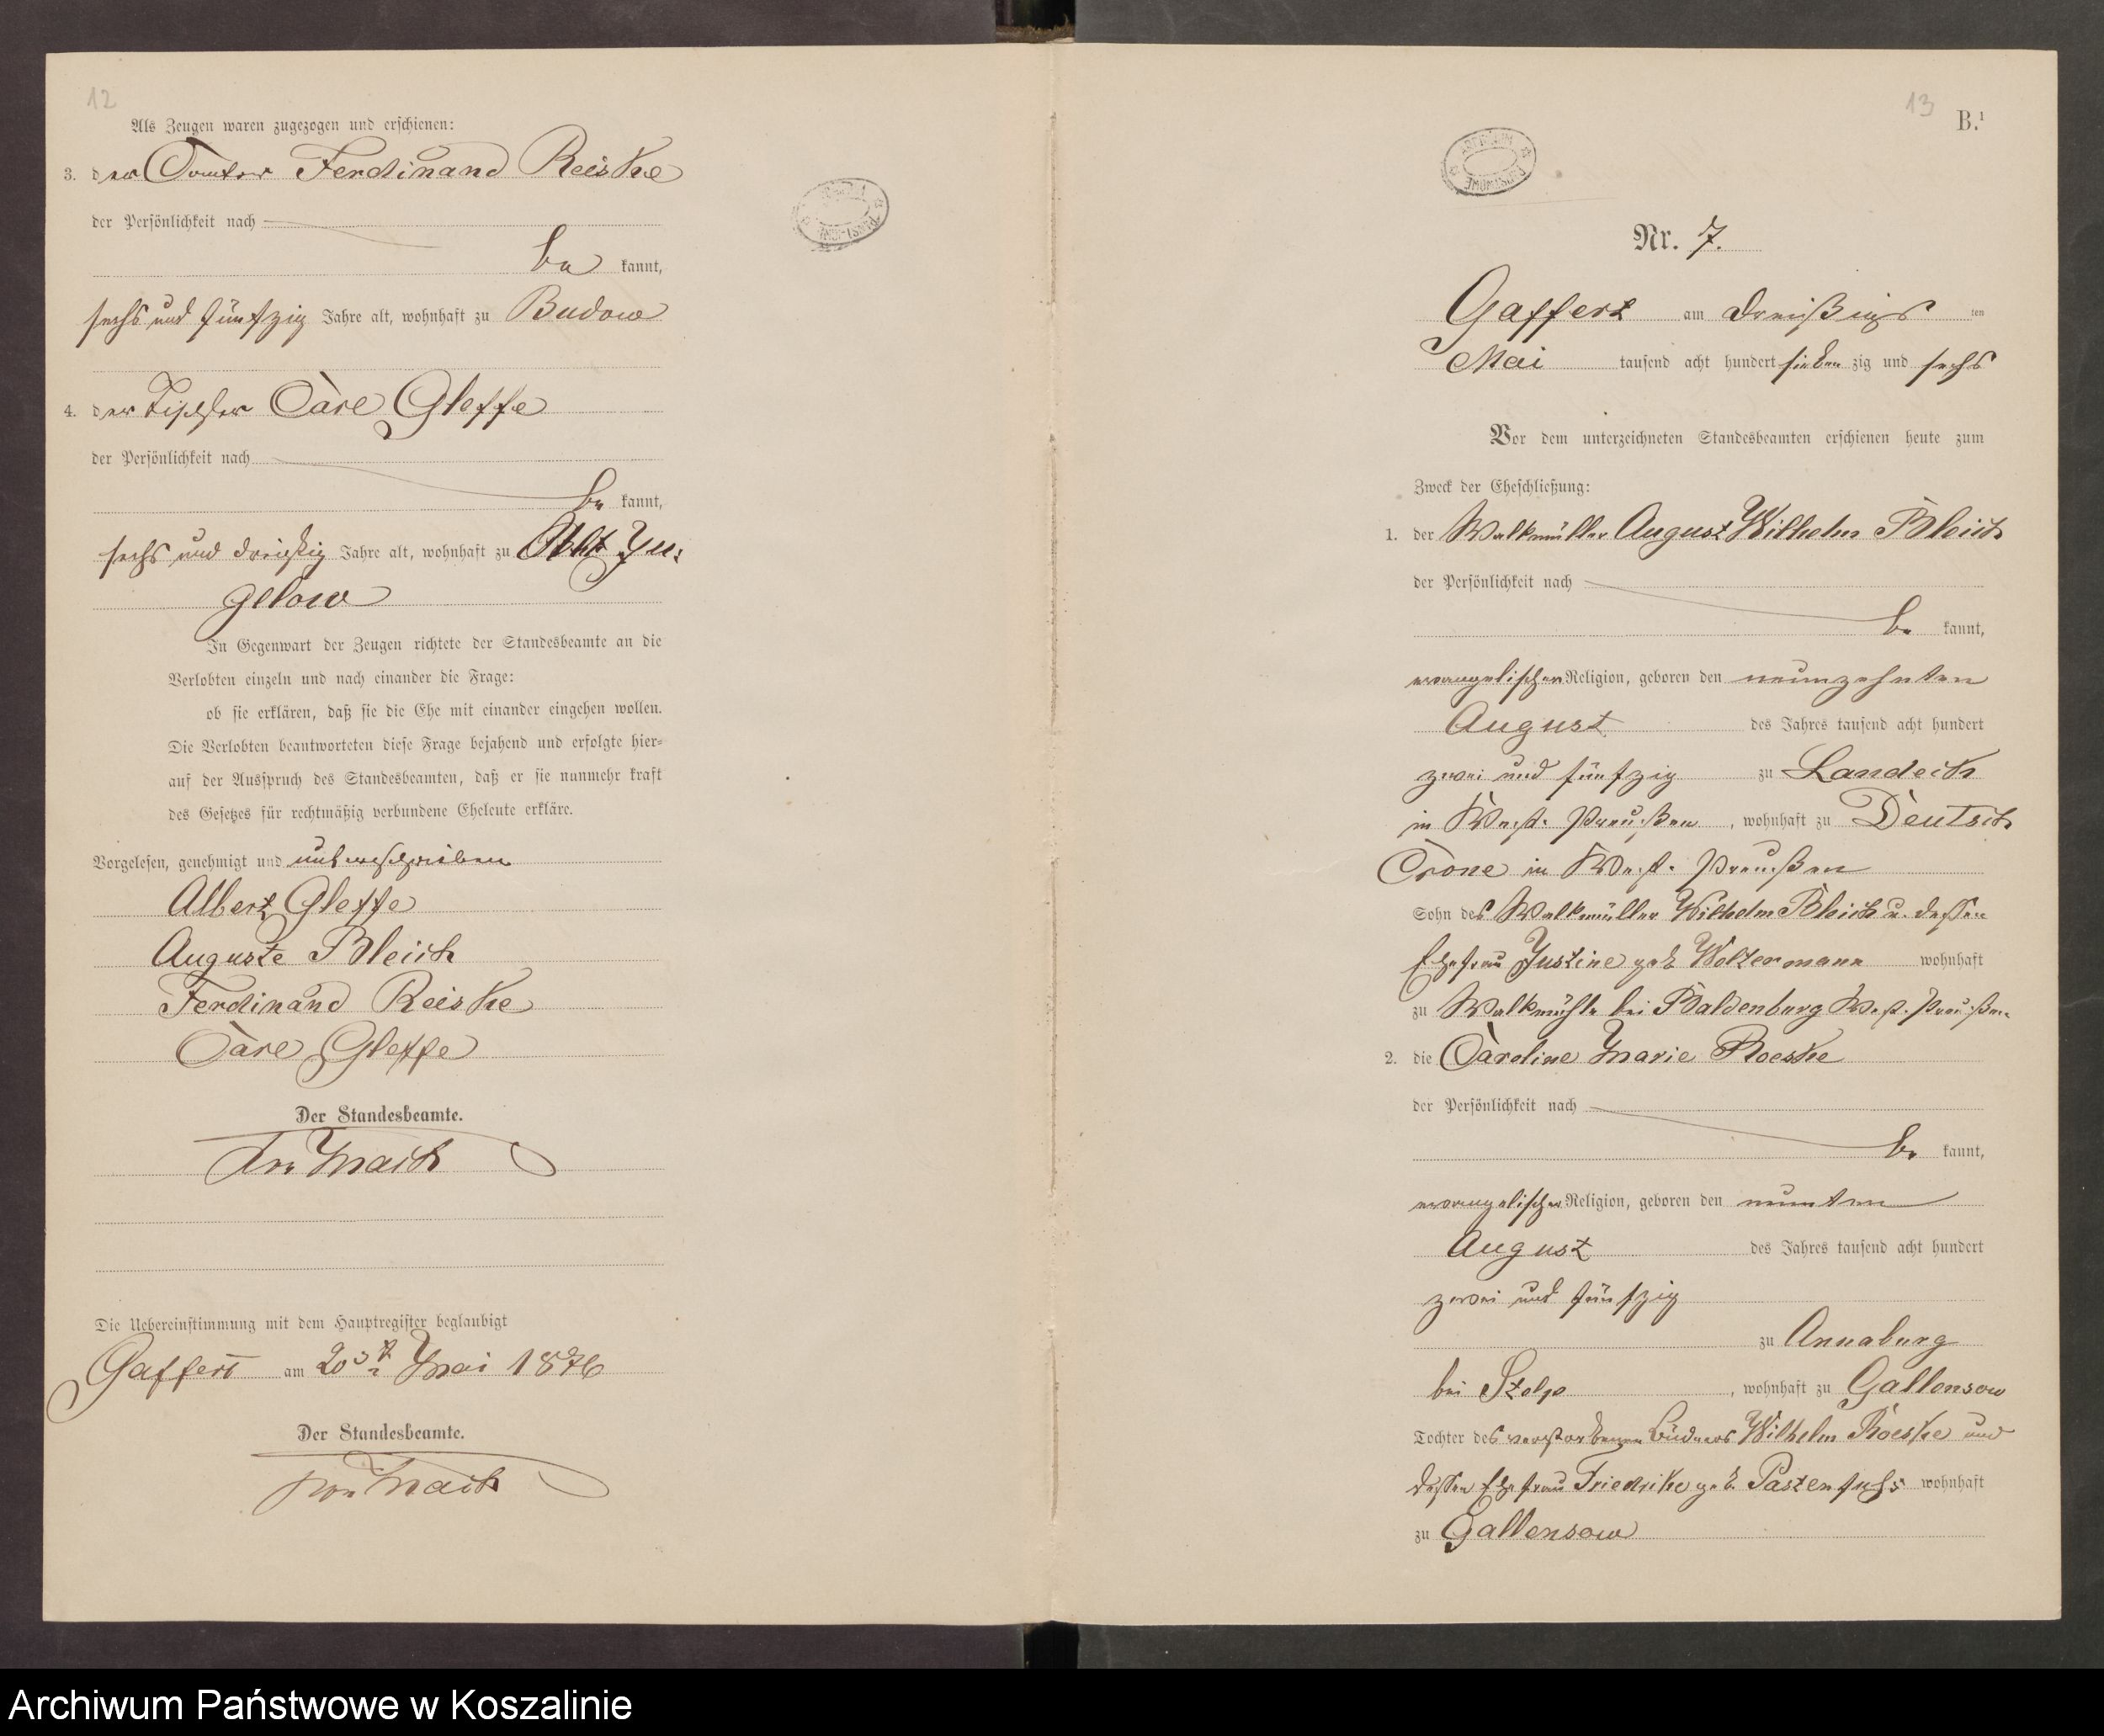 12
Als Zeugen waren zugezogen und erschienen:
3. der Cantor Ferdinand Reiske
der Persönlichkeit nach
be kannt,
sechs und fünfzig Jahre alt, wohnhaft zu Budow
4. der Tischler Carl Gleffe
der Persönlichkeit nach
be kannt,
sechs und dreißig Jahre alt, wohnhaft zu Alt Ju-
gelow
In Gegenwart der Zeugen richtete der Standesbeamte an die
Verlobten einzeln und nach einander die Frage:
ob sie erklären, daß sie die Ehe mit einander eingehen wollen.
Die Verlobten beantworteten diese Frage bejahend und erfolgte hier-
auf der Ausspruch des Standesbeamten, daß er sie nunmehr kraft
des Gesetzes für rechtmäßig verbundene Eheleute erkläre.
Vorgelesen, genehmigt und unterschrieben
Albert Gleffe
Auguste Bleich
Ferdinand Reiske
Carl Gleffe
Der Standesbeamte.
von Mach
Die Uebereinstimmung mit dem Hauptregister beglaubigt
Gaffert am Mai 1876
Der Standesbeamte.
von Mach
13
B.¹
Nr. 7.
Gaffert am dreißigs ten
Mai tausend acht hundert sieben zig und sechs
Vor dem unterzeichneten Standesbeamten erschienen heute zum
Zweck der Eheschließung:
1. der Walkmüller August Wilhelm Bleich
der Persönlichkeit nach
be kannt,
evangelischer Religion, geboren den neunzehnten
August des Jahres tausend acht hundert
zwei und fünfzig zu Landeck
in West-Preußen, wohnhaft zu Deutsch
Crone in West-Preußen
Sohn des Walkmüller Wilhelm Bleich u. dessen
Ehefrau Justine geb Woltermann wohnhaft
zu Walkmühle bei Baldenburg West-Preußen
2. die Caroline Marie Roeske
der Persönlichkeit nach
be kannt,
evangelischer Religion, geboren den neunten
August des Jahres tausend acht hundert
zwei und fünfzig
zu Annaburg
bei Stolp, wohnhaft zu Gallensow
Tochter des verstorbenen Büdners Wilhelm Roeske und
dessen Ehefrau Friedrike geb. Pastenfuhs wohnhaft
zu Gallensow
Archiwum Państwowe w Koszalinie